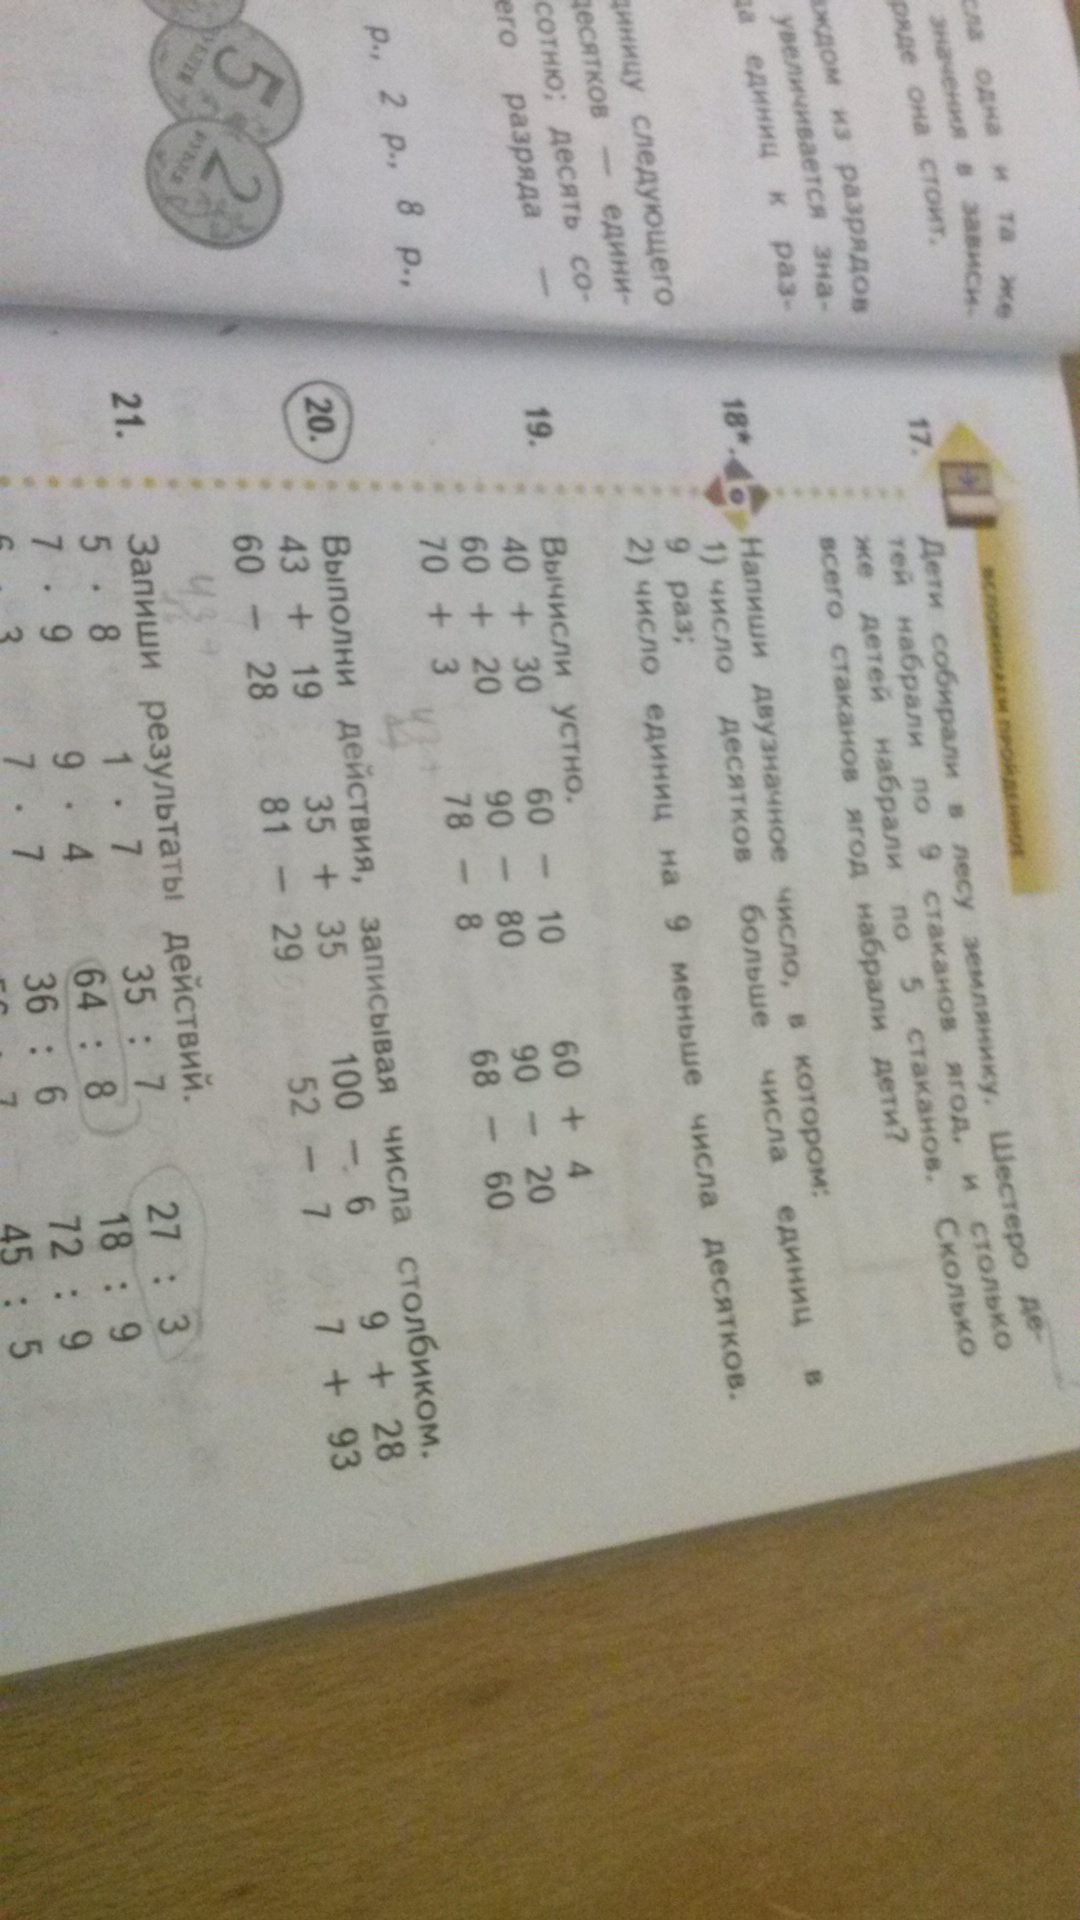 сла одна и та же
значения в зависи-
ряде она стоит.
аждом из разрядов
увеличивается зна-
да единиц к раз-
диницу следующего
десятков — едини-
сотню; десять со-
его разряда —
р., 2 р., 8 р.,
5
2
ВСПОМИНАЕМ ПРОЙДЕННОЕ
17. Дети собирали в лесу землянику. Шестеро де-
тей набрали по 9 стаканов ягод, и столько
же детей набрали по 5 стаканов. Сколько
всего стаканов ягод набрали дети?
18*. Напиши двузначное число, в котором:
1) число десятков больше числа единиц в
9 раз;
2) число единиц на 9 меньше числа десятков.
19. Вычисли устно.
40 + 30 60 − 10 60 + 4
60 + 20 90 − 80 90 − 20
70 + 3 78 − 8 68 − 60
20. Выполни действия, записывая числа столбиком.
43 + 19 35 + 35 100 − 6 9 + 28
60 − 28 81 − 29 52 − 7 7 + 93
21. Запиши результаты действий.
5 · 8 1 · 7 35 : 7 27 : 3
7 · 9 9 · 4 64 : 8 18 : 9
6 · 3 7 · 7 36 : 6 72 : 9
45 : 5